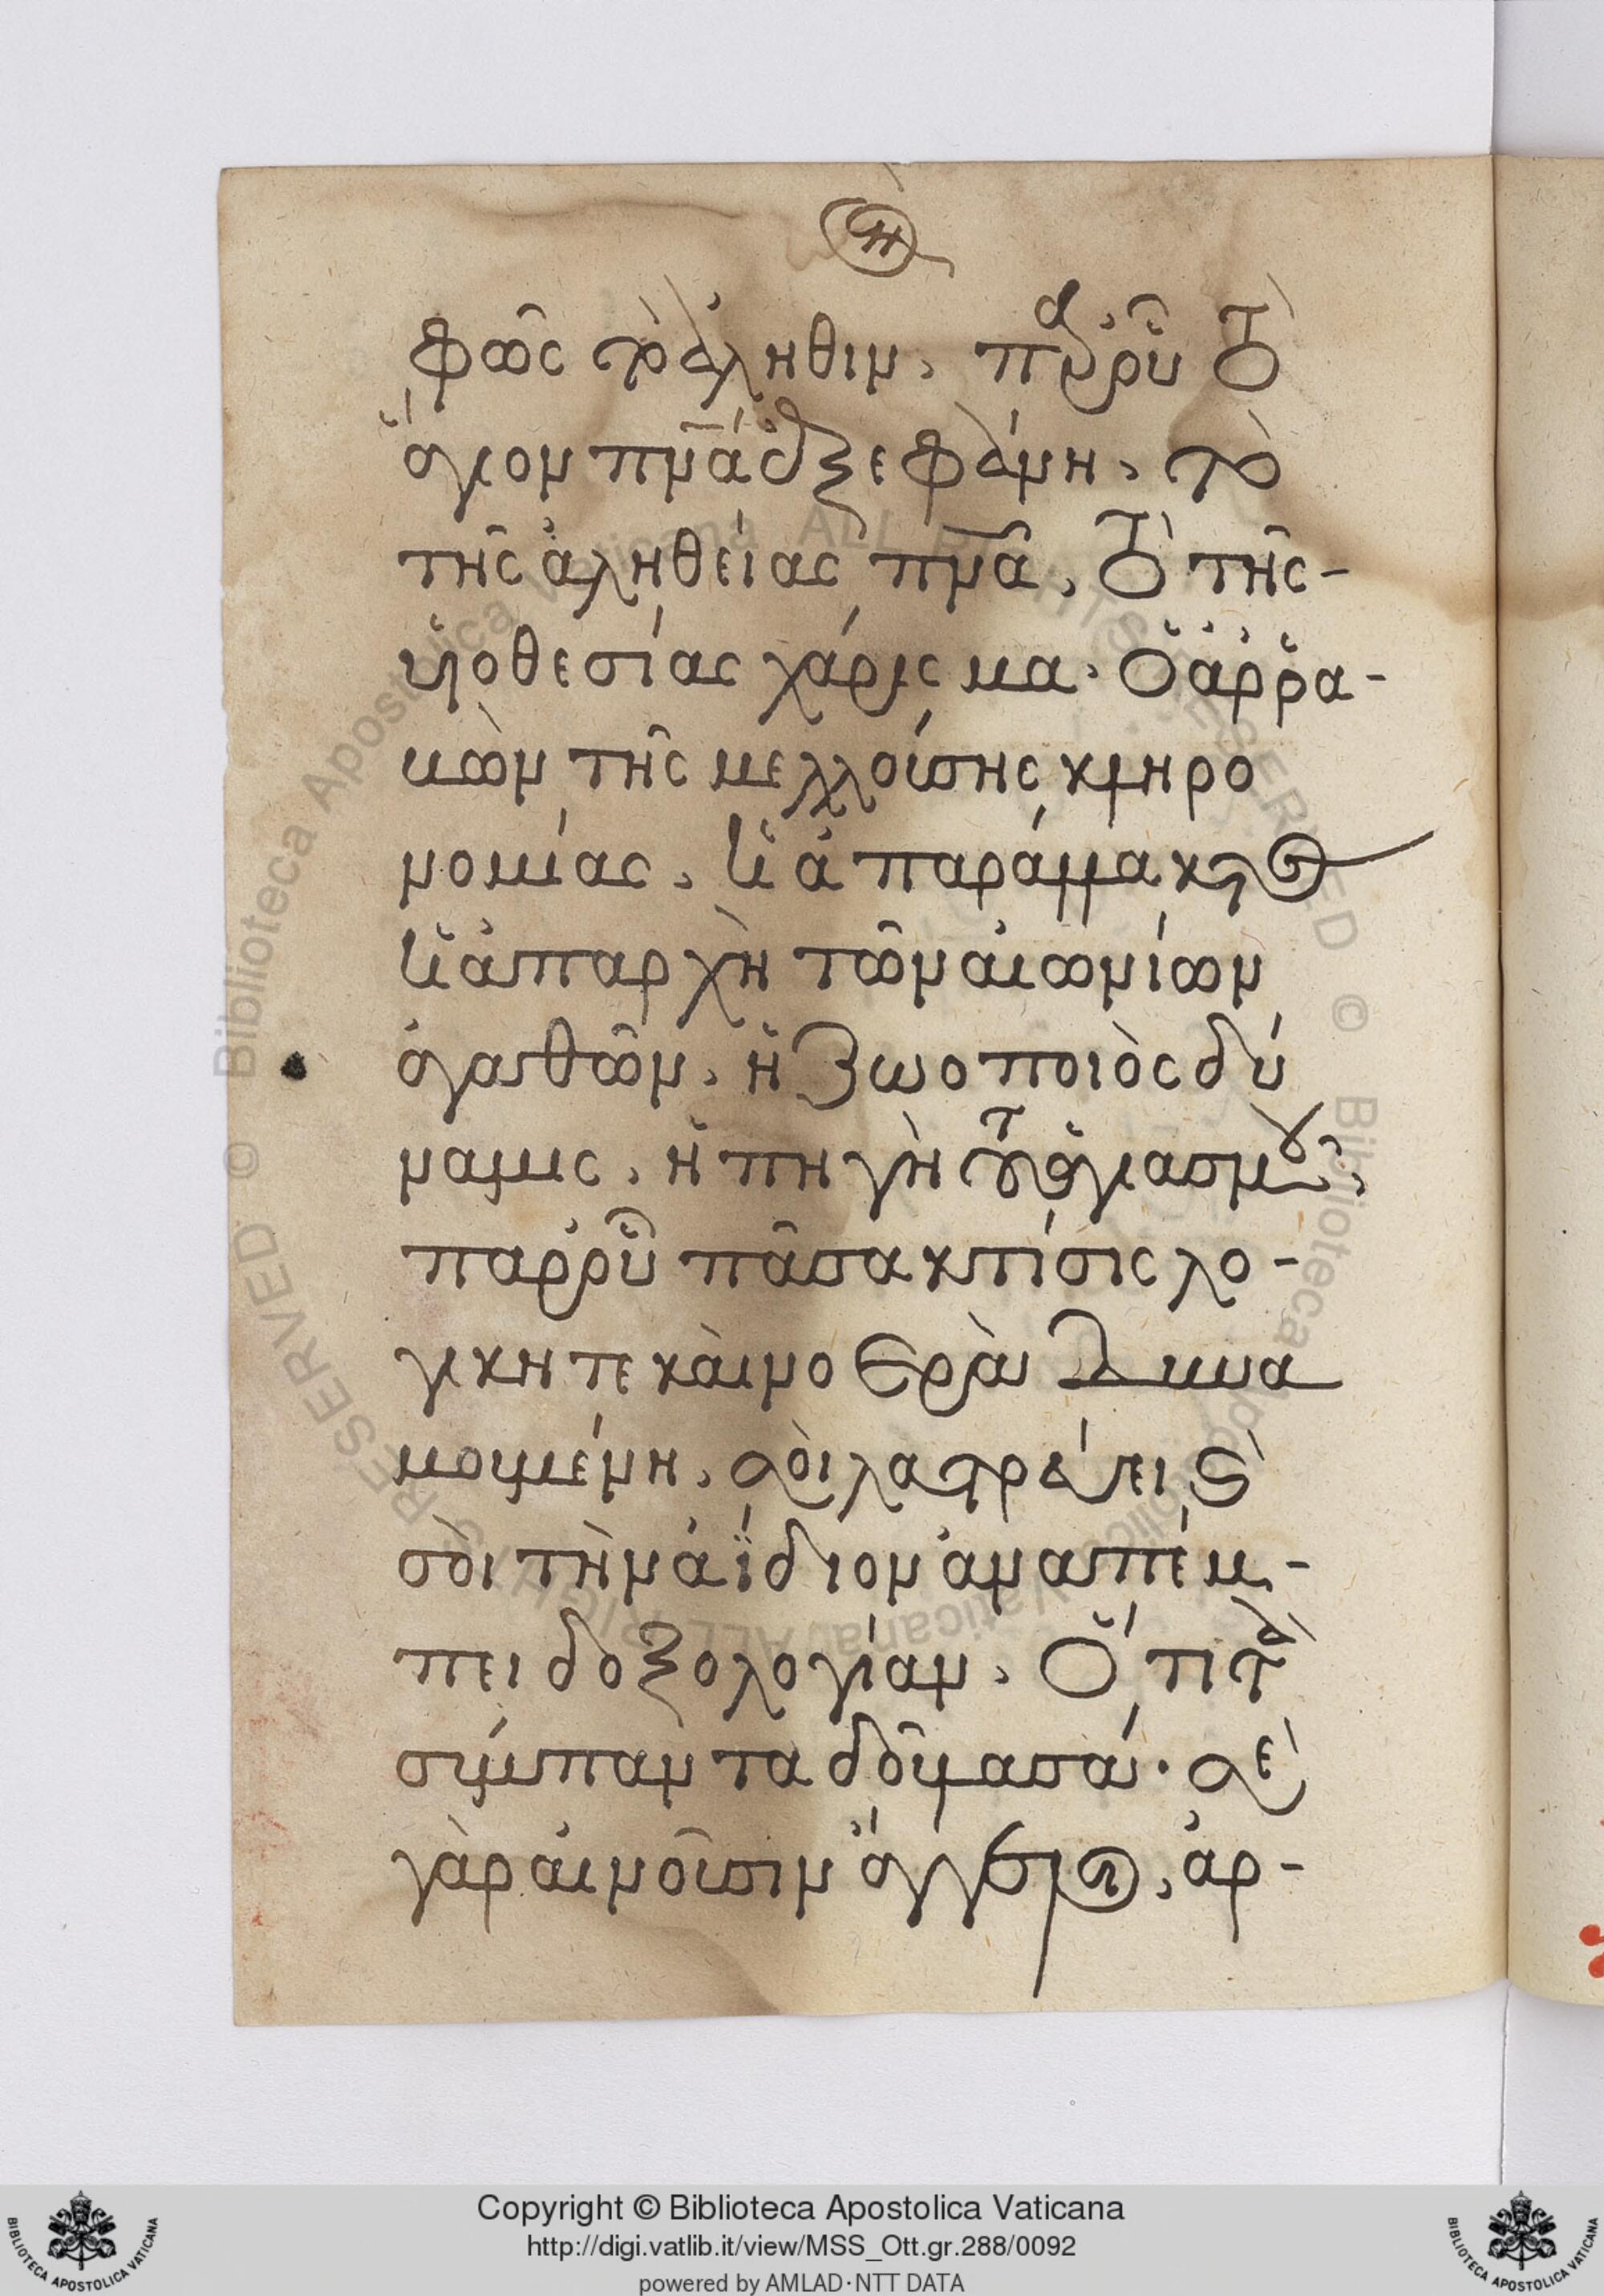 η
φῶς τὸ ἀληθιν, παρ' οὗ τὸ
ἅγιον πνᾶ ἐξεφάνη, τὸ
τῆς ἀληθείας πνᾶ, τὸ τῆς-
υἱοθεσίας χάρισμα. ὁ ἀρρα-
βὼν τῆς μελλούσης κληρο
νομίας, καὶ
καὶ ἀπαρχὴ τῶν αἰωνίων
ἀγαθῶν, ἡ ζωοποιὸς δύ
ναμις, ἡ πηγὴ τοῦ ἁγιασμοῦ,
παρ' οὗ πᾶσα κτίσις λο-
γικη τε καὶ νοερὰ δυνα
μουμένη, σὸι λατρεύει καὶ
σὸι τὴν ἀΐδιον ἀναπέμ-
πει δοξολογίαν, ὅτι τὰ
σύμπαντα δοῦλα σά. σὲ
γὰρ αἰνοῦσιν ἄγγελοι, ἀρ-
Copyright © Biblioteca Apostolica Vaticana
http://digi.vatlib.it/view/MSS_Ott.gr.288/0092
powered by AMLAD·NTT DATA